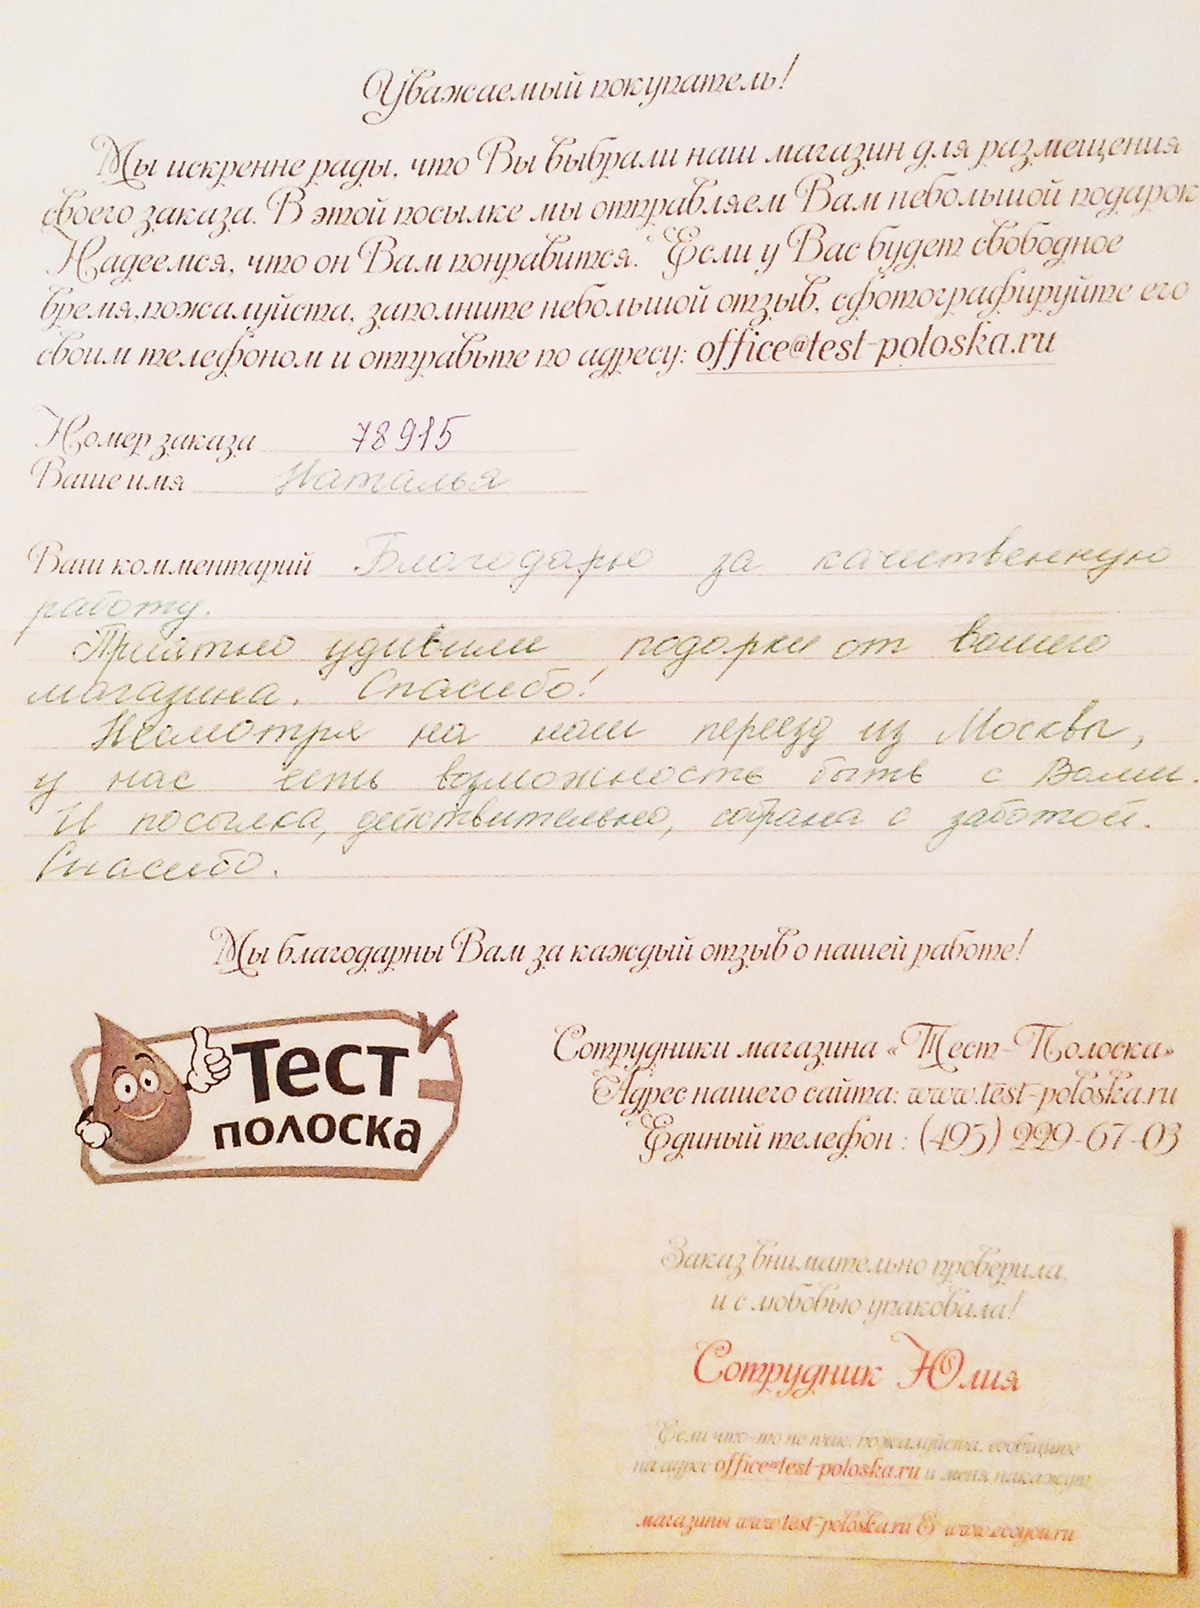 Уважаемый покупатель!
Мы искренне рады, что Вы выбрали наш магазин для размещения
своего заказа. В этой посылке мы отправляем Вам небольшой подарок
Надеемся, что он Вам понравится. Если у Вас будет свободное
время, пожалуйста, заполните небольшой отзыв, сфотографируйте его
своим телефоном и отправьте по адресу: office@test-poloska.ru
Номер заказа 78915
Ваше имя Наталья
Ваш комментарий Благодарю за качественную
работу.
Приятно удивили подарки от вашего
магазина. Спасибо!
Несмотря на наш переезд из Москвы,
у нас есть возможность быть с Вами.
И посылка, действительно, собрана с заботой.
Спасибо.
Мы благодарны Вам за каждый отзыв о нашей работе!
Тест
полоска
Сотрудники магазина «Тест-Полоска»
Адрес нашего сайта: www.test-poloska.ru
Единый телефон : (495) 229-67-03
Заказ внимательно проверила,
и с любовью упаковала!
Сотрудник Юлия
Если что-то не так, пожалуйста, сообщите
на адрес office@test-poloska.ru и меня накажут
магазины www.test-poloska.ru & www.ecoyou.ru